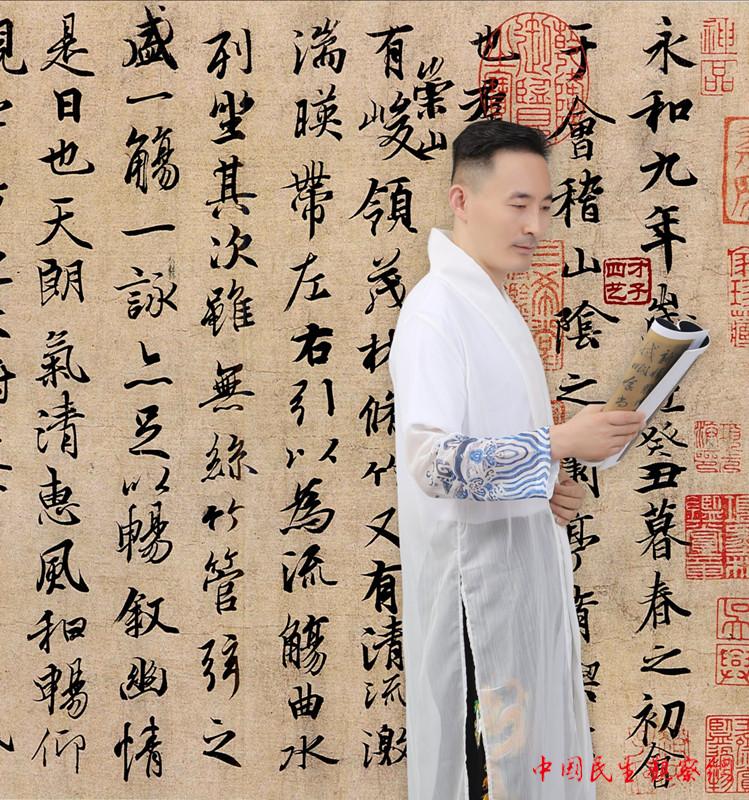 神品
永和九年歲在癸丑暮春之初會
于會稽山陰之蘭亭脩禊
也羣
有崇山峻領茂林脩竹又有清流激
湍暎帶左右引以為流觴曲水
列坐其次雖無絲竹管弦之
盛一觴一詠亦足以暢敘幽情
是日也天朗氣清惠風和暢仰
才子四艺
中国民生觀察網